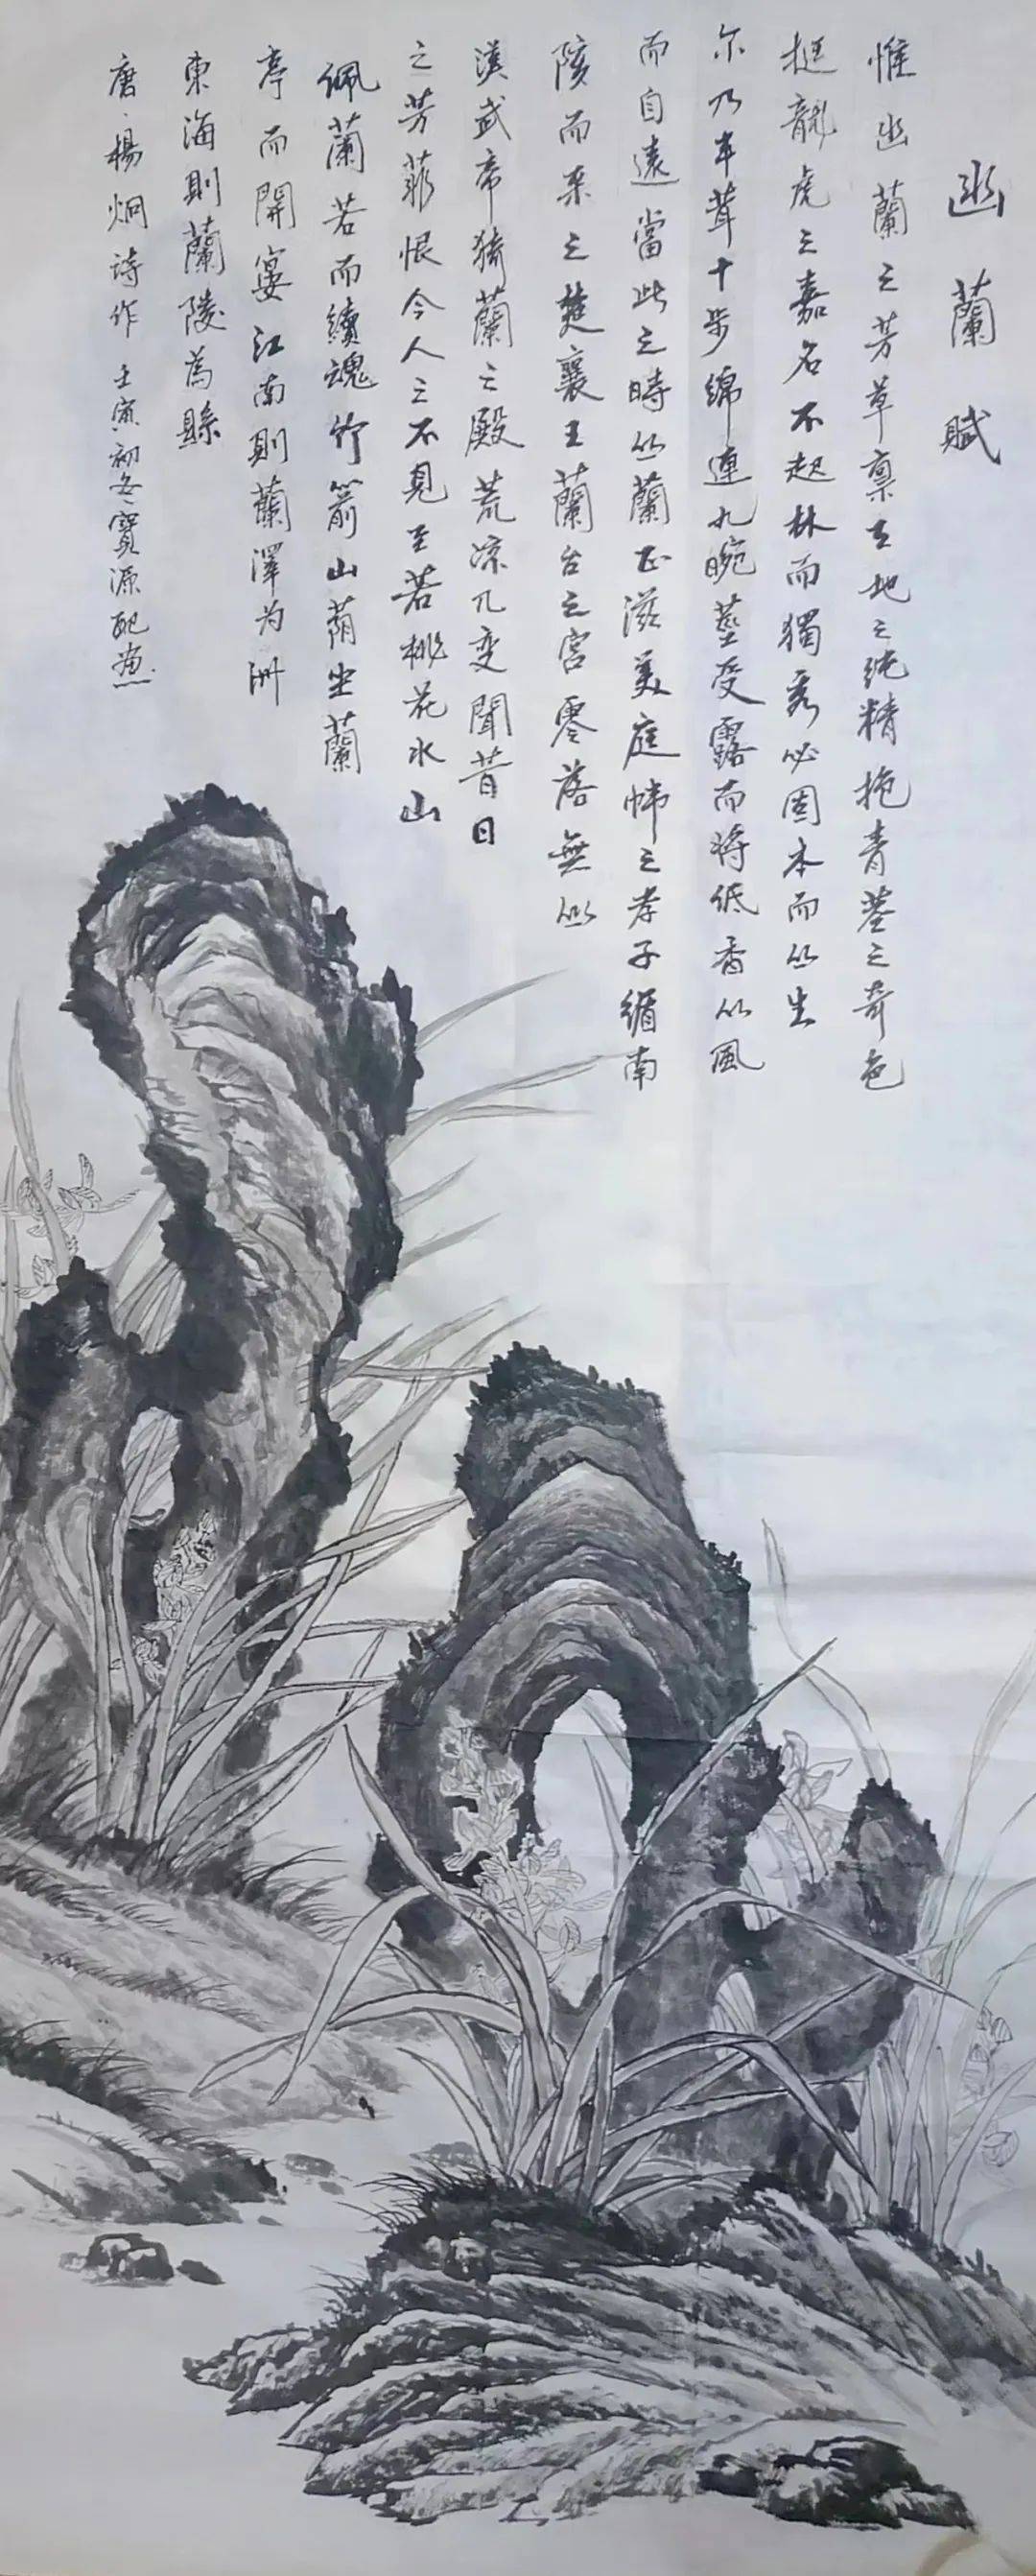 幽蘭賦
惟幽蘭之芳草禀天地之纯精抱青莖之奇色
挺龍虎之嘉名不起林而獨秀必固本而丛生
尔乃丰茸十步绵連九畹莖受露而将低香从風
而自遠當此之時丛蘭正滋美庭帏之孝子循南
陔而采之楚襄王蘭台之宫零落無丛
漢武帝猗蘭之殿荒凉几变聞昔日
之芳菲恨今人之不見至若桃花水山
佩蘭若而續魂竹箭山蔭坐蘭
亭而開宴江南則蘭澤为洲
東海則蘭陵為縣
唐楊炯诗作 壬寅初冬寶源配画